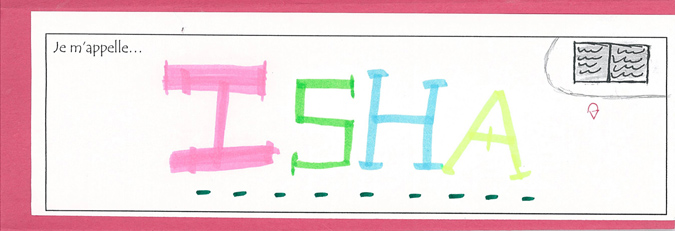 Je m'appelle...
ISHA